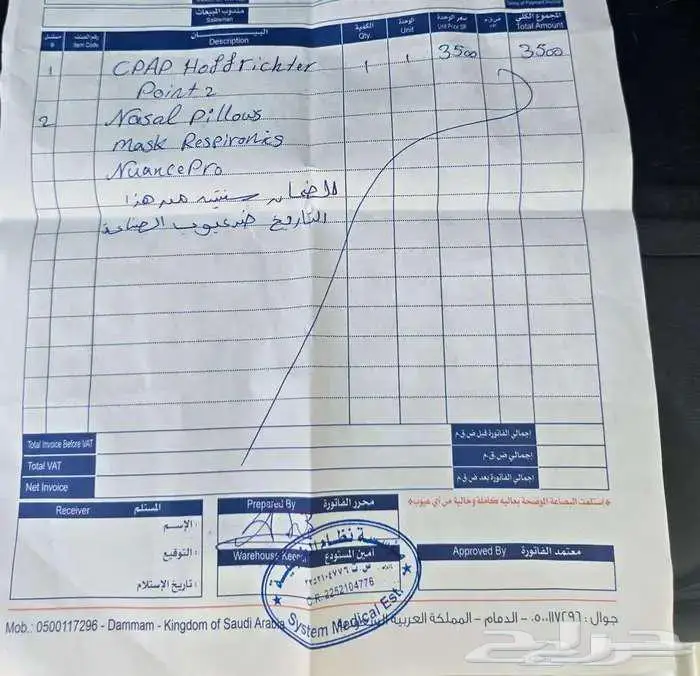 مندوب المبيعات
Salesman
مسلسل # رقم الصنف Item Code البيـــــان Description الكمية Qty. الوحدة Unit سعر الوحدة Unit Price SR ض.ق.م المجموع الكلي Total Amount
1 CPAP Hoffrichter 1 1 3500 3500
Point 2
2 Nasal Pillows
Mask Respironics
NuancePro
الضمان سنتين من هذا
التاريخ ضد عيوب الصناعة
Total Invoice Before VAT إجمالي الفاتورة قبل ض.ق.م
Total VAT إجمالي ض.ق.م
Net Invoice إجمالي الفاتورة بعد ض.ق.م
*استلمت البضاعة الموضحة بعاليه كاملة وخالية من أي عيوب*
Receiver المستلم
الإسم :
التوقيع :
تاريخ الإستلام :
Prepared By محرر الفاتورة
Warehouse أمين المستودع
Approved By معتمد الفاتورة
مؤسسة نظام
C.R. 2252104776
System Medical Est.
Mob.: 0500117296 - Dammam - Kingdom of Saudi Arabia
جوال : ٠٥٠٠١١٧٢٩٦ - الدمام - المملكة العربية السعودية
حراج